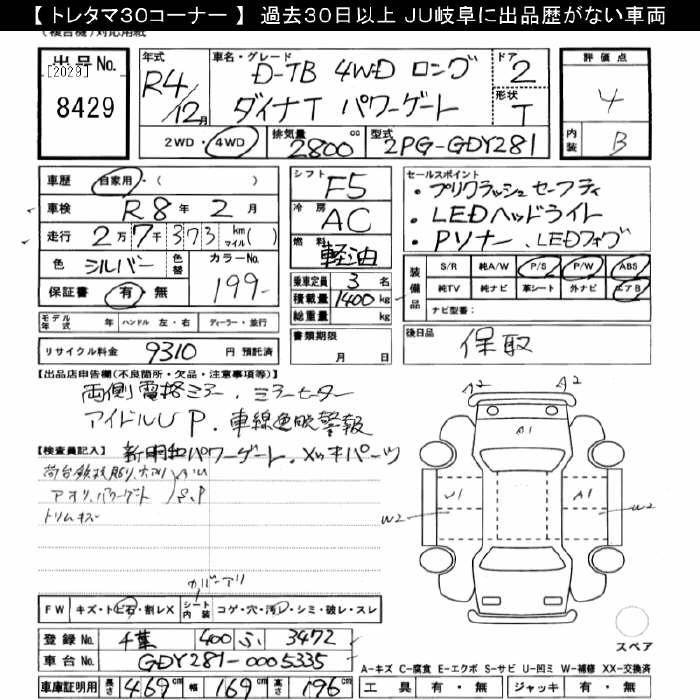 【 トレタマ30コーナー 】 過去30日以上 JU岐阜に出品歴がない車両
出品No.
[2029]
8429
年式
R4/12月
車名・グレード
D-TB 4WD ロング
ダイナT パワーゲート
ドア
2
形状
T
2WD・4WD
排気量
2800cc
型式
2PG-GDY281
評価点
4
内装
B
車歴 自家用・( )
車検 R8年 2月
走行 2万7千373 km マイル( )
色 シルバー 色替
カラーNo.
199
保証書 有・無
モデル年式 年 ハンドル 左・右 ディーラー・並行
リサイクル料金 9310 円 預託済
シフト
F5
冷房
AC
燃料
軽油
乗車定員 3 名
積載量 1400 kg
総重量 kg
書類期限
月 日
セールスポイント
・プリクラッシュセーフティ
・LEDヘッドライト
・Pソナー、LEDフォグ
装備品
S/R 純A/W P/S P/W ABS
純TV 純ナビ 革シート 外ナビ エアB
ナビ型番:
後日品
保取
【出品店申告欄(不良箇所・欠品・注意事項等)】
両側電格ミラー、ミラーヒーター
アイドルUP、車線逸脱警報
【検査員記入】 新明和パワーゲート、メッキパーツ
アオリ、パワーゲート
S、P
トリムキズ
カバーアリ
FW キズ・トビ石・割レX シート内装 コゲ・穴・汚レ・シミ・破レ・スレ
登録No. 千葉 400 ふ 3472
車台No. GDY281-0005335
車庫証明用 長さ 469cm 幅 169cm 高さ 196cm
A2
A2
A1
U1
A1
W2
W2
スペア
A-キズ C-腐食 E-エクボ S-サビ U-凹ミ W-補修 XX-交換済
工具 有・無 ジャッキ 有・無